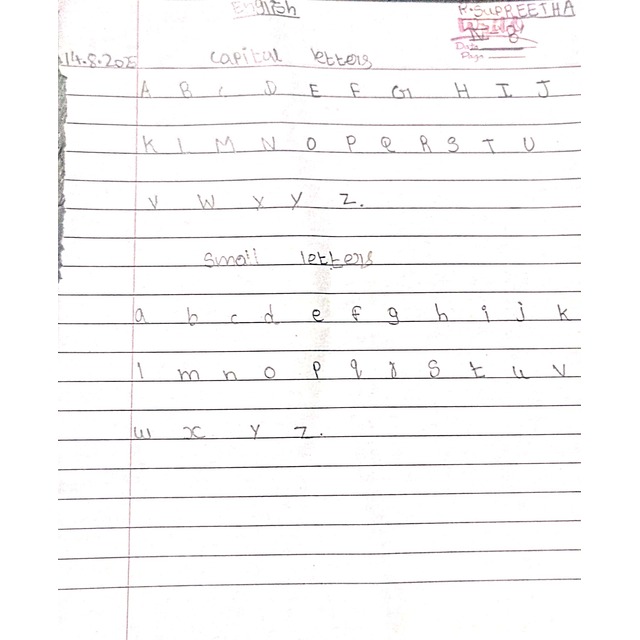 English
K. SUPREETHA
Date
Page
14.8.202
Capital letters
A B C D E F G H I J
K L M N O P Q R S T U
V W X Y Z.
Small letters
a b c d e f g h i j k
l m n o p q r s t u v
w x y z.